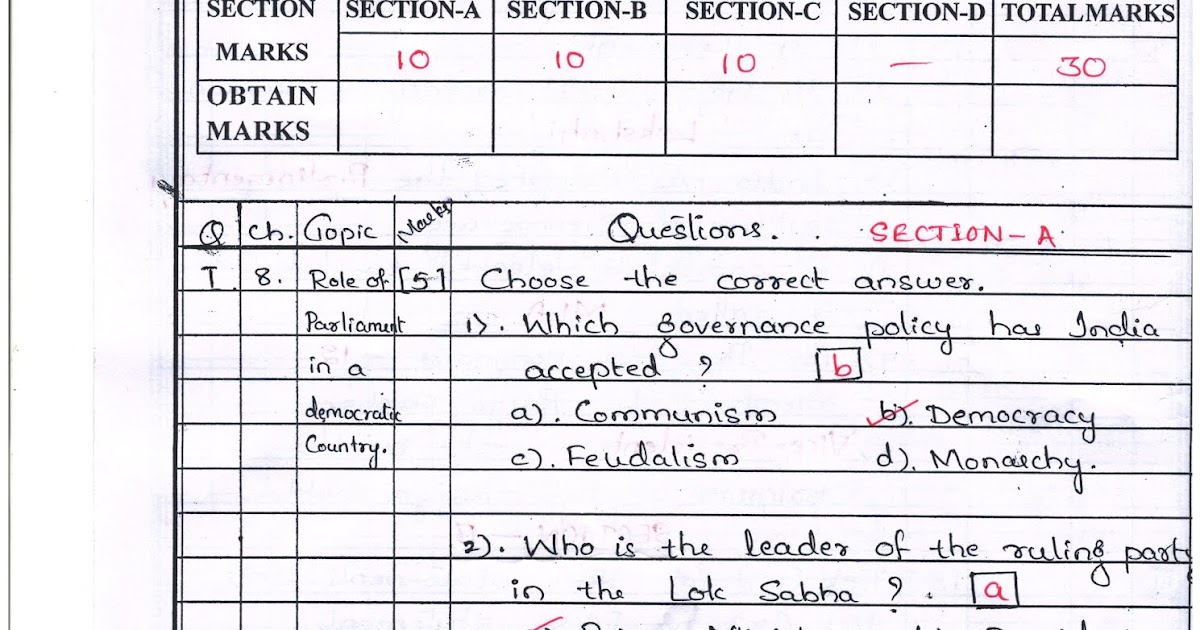 SECTION SECTION-A SECTION-B SECTION-C SECTION-D TOTALMARKS
MARKS 10 10 10 — 30
OBTAIN
MARKS
Q Ch. Topic Marks Questions. . SECTION-A
I. 8. Role of [5] Choose the correct answer.
Parliament 1). Which governance policy has India
in a accepted ? b
democratic a). Communism b). Democracy
Country. c). Feudalism d). Monarchy.
2). Who is the leader of the ruling part
in the Lok Sabha ? . a